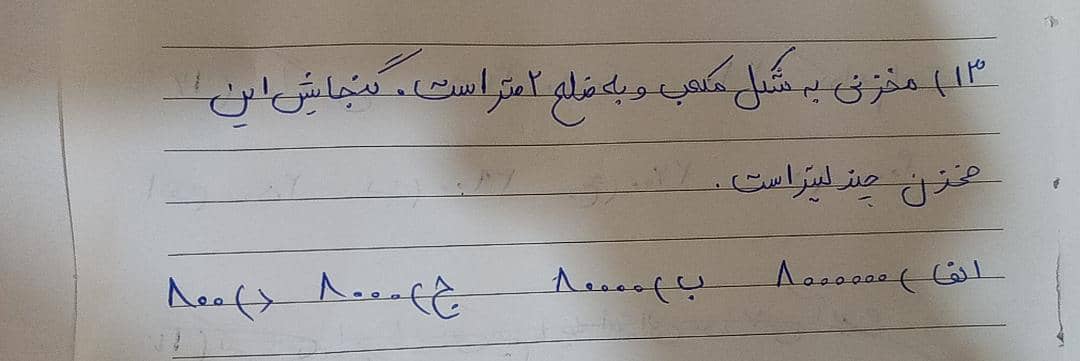 ۱۳) مخزنی به شکل مکعب و به ضلع ۲ متر است. گنجایش این
مخزن چند لیتر است.
الف) ۸۰۰۰۰۰۰ ب) ۸۰۰۰۰۰ ج) ۸۰۰۰۰ د) ۸۰۰